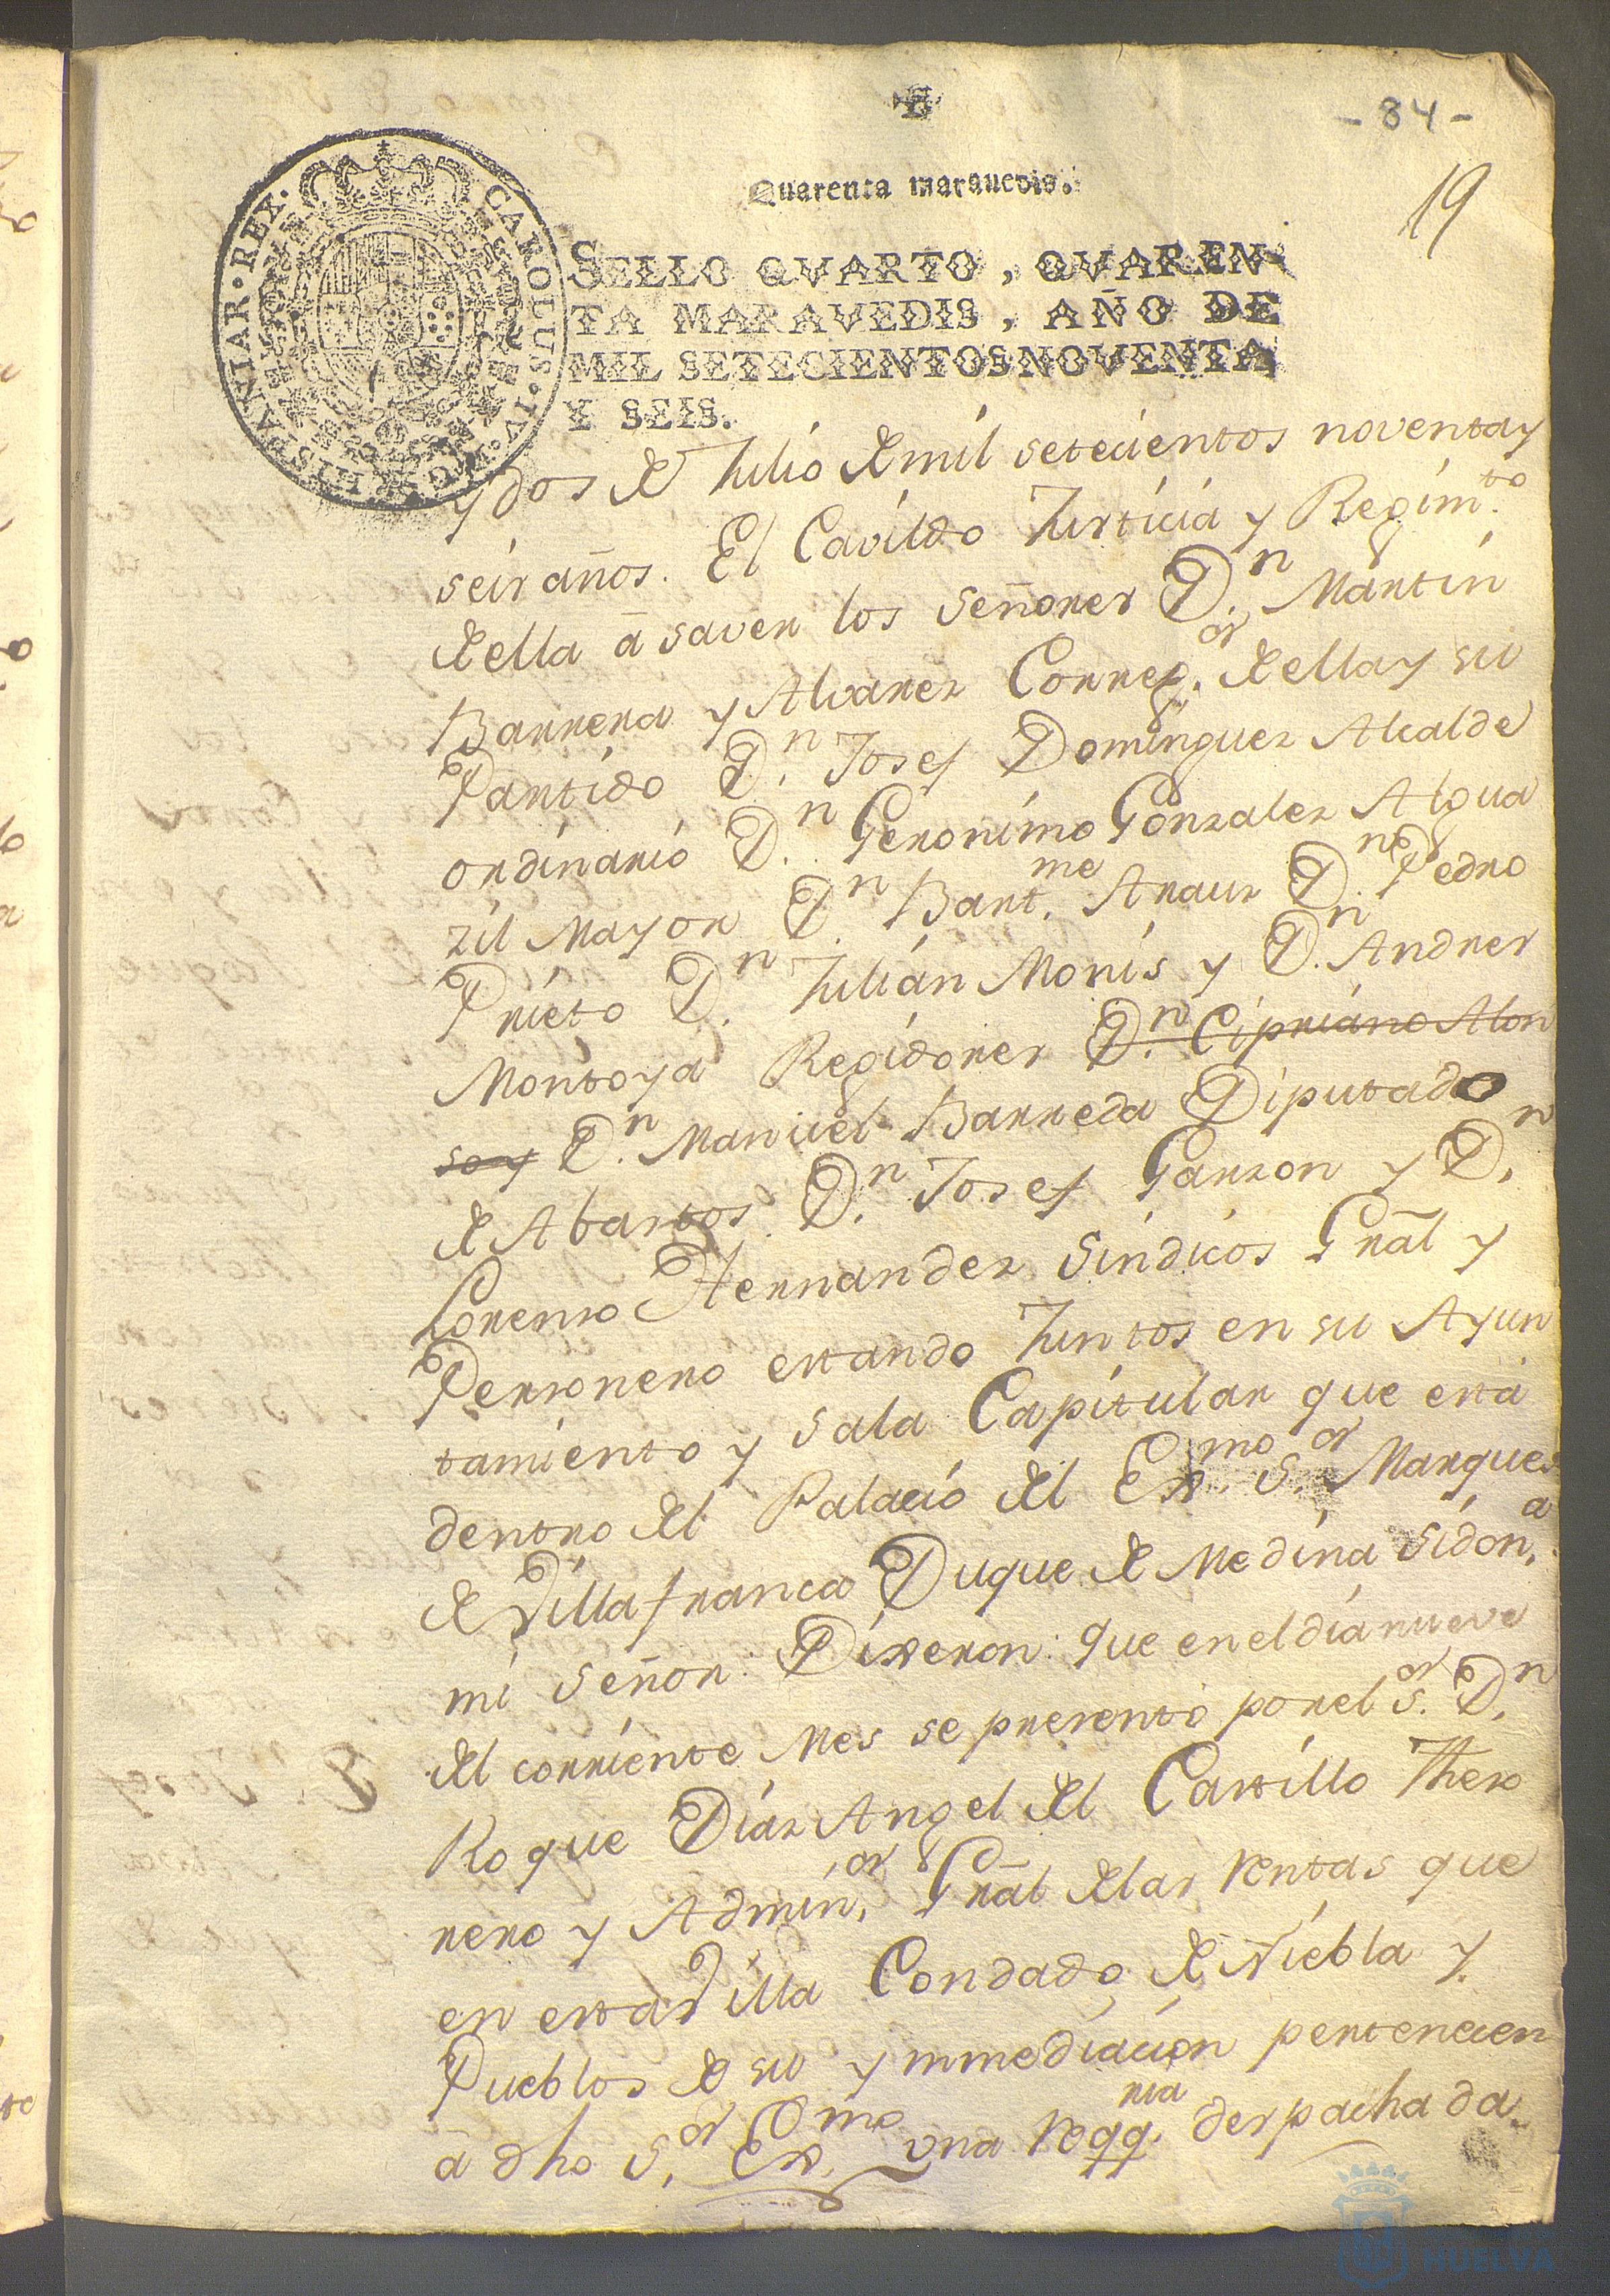 - 84 -
19
Quarenta marauedis.
SELLO QVARTO, QVAREN
TA MARAVEDIS, AÑO DE
MIL SETECIENTOS NOVENTA
Y SEIS.
CAROLUS · IV · D · G · HISPANIAR · REX ·
y dos de Julio de mil setecientos noventa y
seis años. El Cavildo Justicia y Regim.to
de ella â saver los señores D.n Martin
Barrera y Alvarez Correg.or de ella y su
Partido D.n Josef Dominguez Alcalde
ordinario D.n Geronimo Gonzalez Algua
zil Mayor D.n Bart.me Arauz D.n Pedro
Prieto D.n Julian Monis y D.n Andres
Montoya Regidores D.n Cipriano Alon
so y D.n Manuel Barreda Diputado
de Abastos D.n Josef Garzon y D.n
Lorenzo Hernandez Sindicos Gñral y
Personero estando Juntos en su Ayun
tamiento y sala Capitular que está
dentro del Palacio del Exmo S.or Marques
de Villafranca Duque de Medina Sidon.a
mi señor: Dixeron: que en el dia nueve
del corriente Mes se presentó por el S.or D.n
Roque Diaz Angel del Castillo Theso
rero y Admin.or Gñral de las rentas que
en esta Villa Condado de Niebla y
Pueblos de su ymmediacion pertenecen
â dho S.or Exmo una reqq.ria despachada
HUELVA